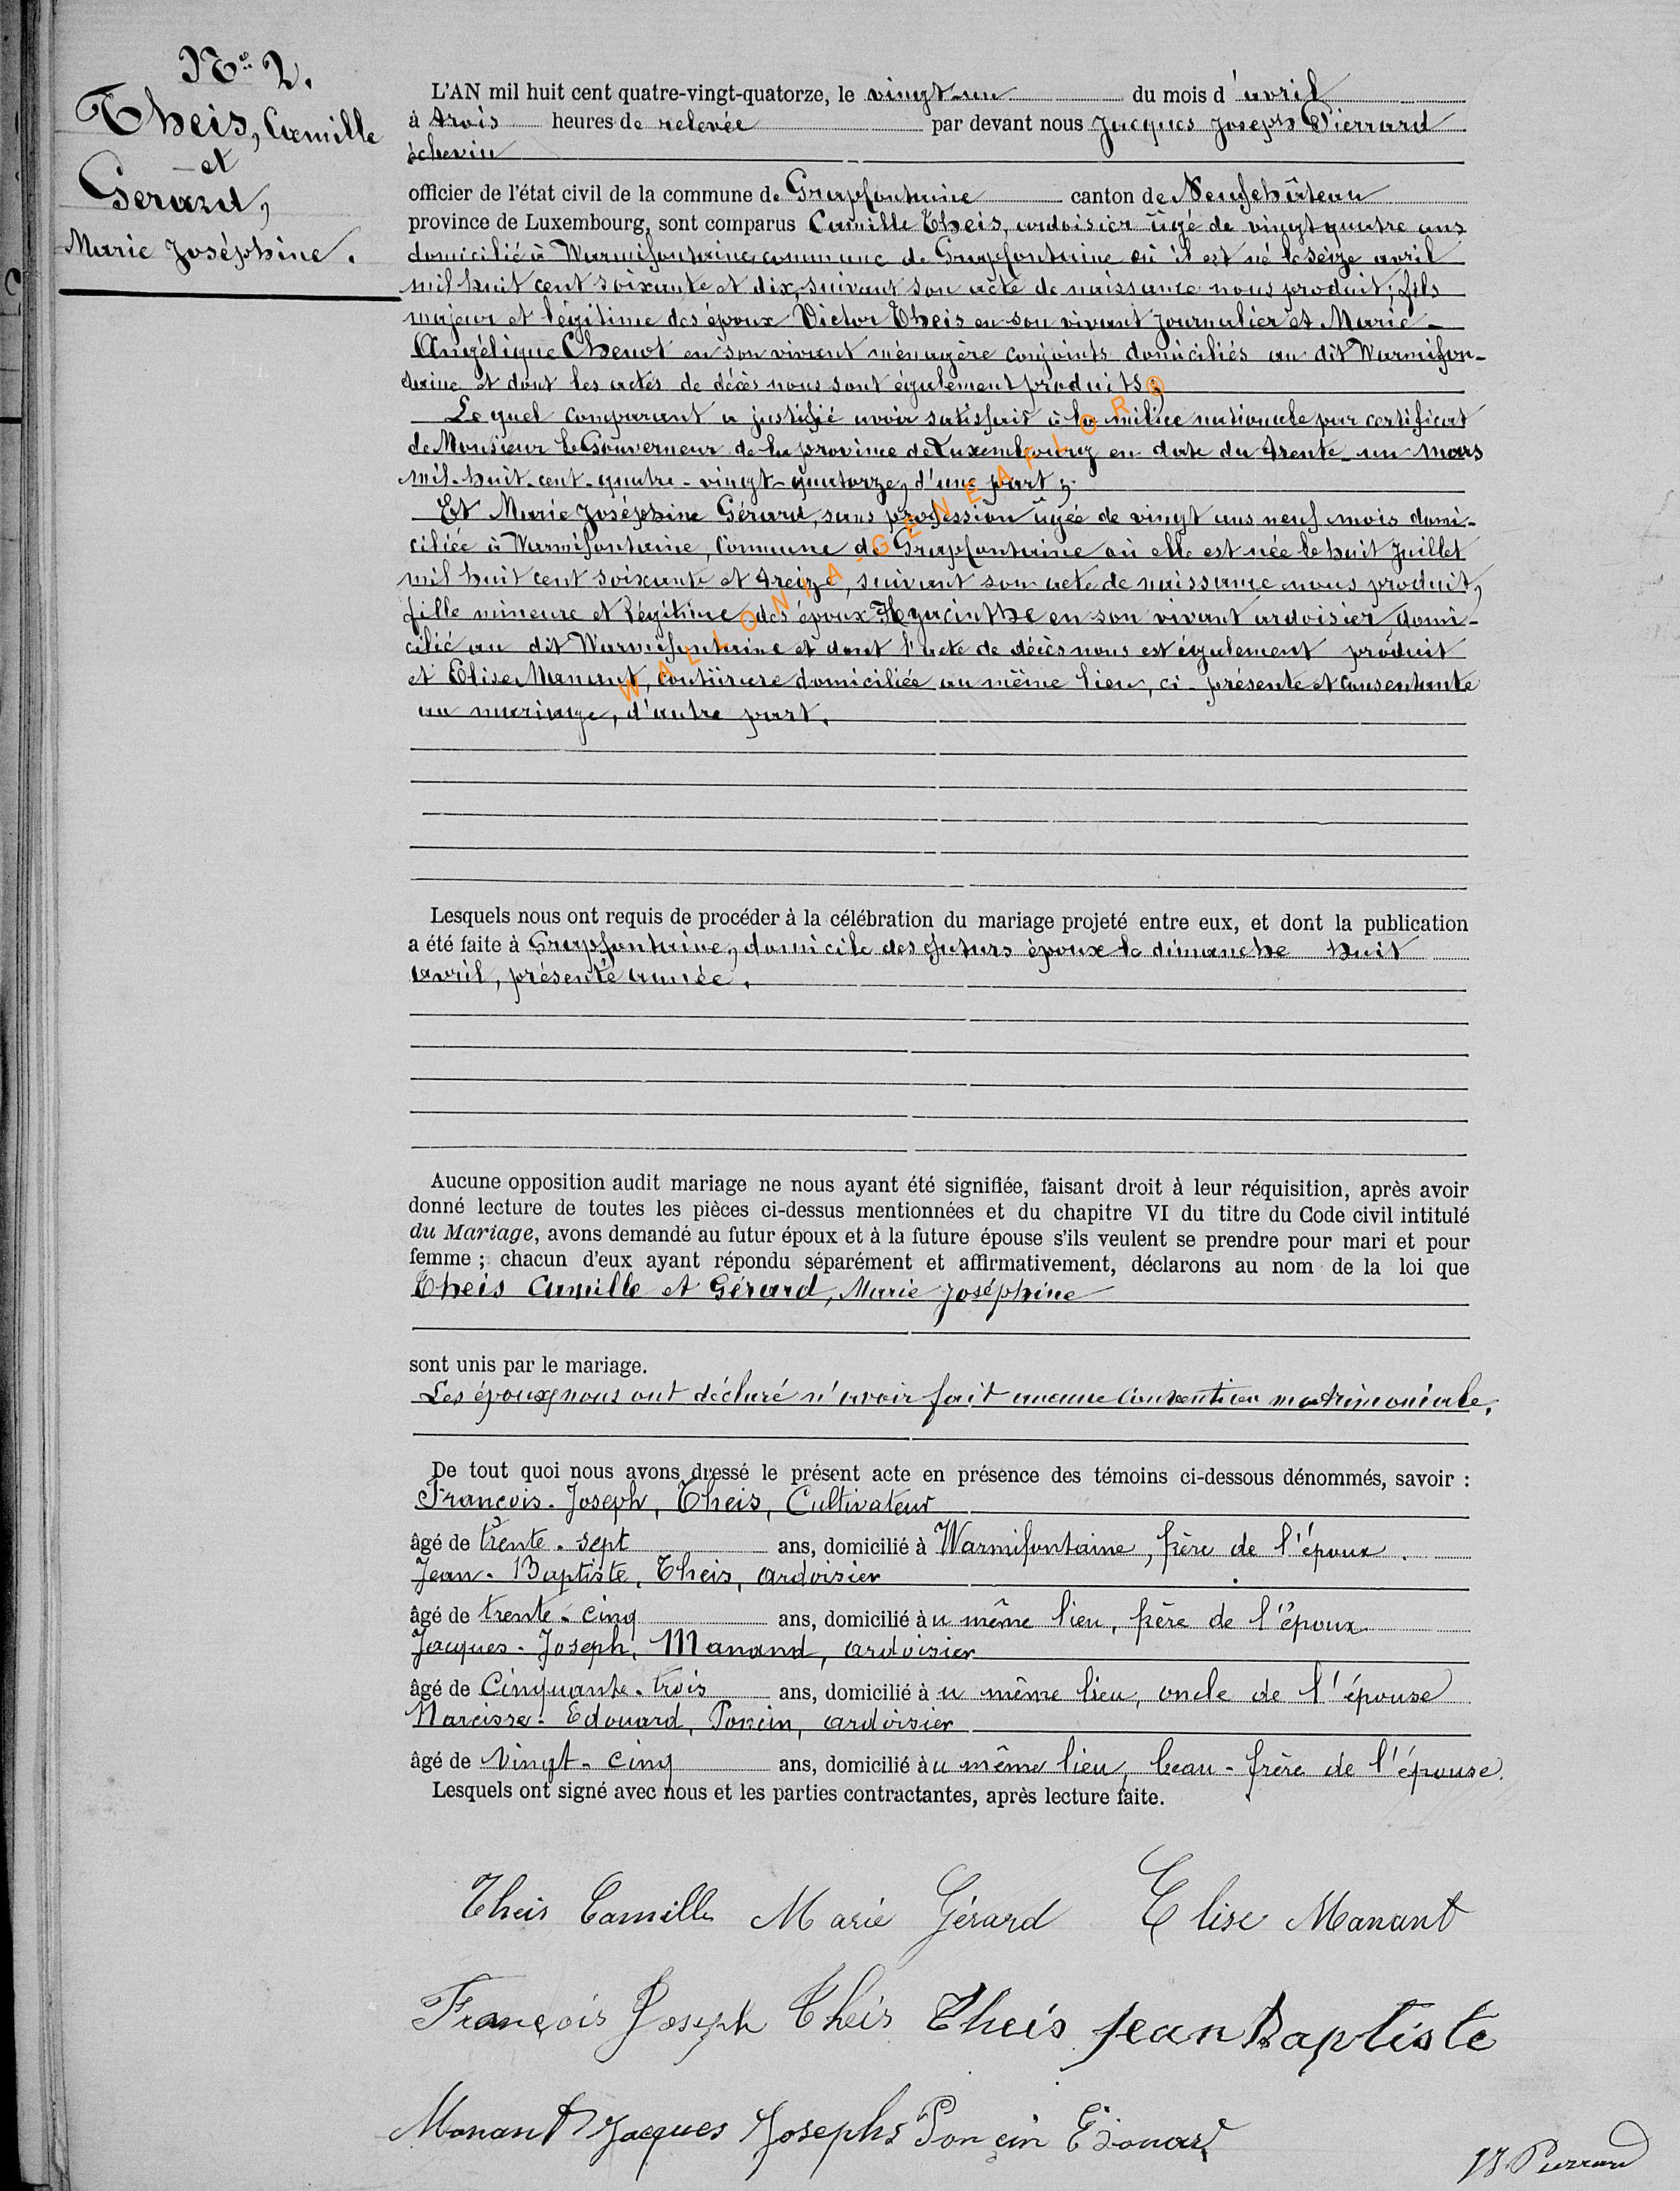 Nº 2.
Theis, Camille
et
Gerard,
Marie Joséphine.
L'AN mil huit cent quatre-vingt-quatorze, le vingt-un du mois d'avril
à trois heures de relevée par devant nous Jacques Joseph Pierrard
échevin
officier de l'état civil de la commune de Grapfontaine canton de Neufchâteau
province de Luxembourg, sont comparus Camille Theis, ardoisier âgé de vingt quatre ans
domicilié à Warmifontaine, commune de Grapfontaine où il est né le seize avril
mil huit cent soixante et dix, suivant son acte de naissance nous produit; fils
majeur et légitime des époux Victor Theis en son vivant journalier et Marie-
Angélique Chenot en son vivant ménagère conjoints domiciliés au dit Warmifon-
taine et dont les actes de décès nous sont également produits;
Le quel comparant a justifié avoir satisfait à la milice nationale par certificat
de Monsieur le Gouverneur de la province de Luxembourg en date du trente-un mars
mil-huit-cent-quatre-vingt-quatorze, d'une part;
Et Marie Joséphine Gérard, sans profession âgée de vingt ans neuf mois domi-
ciliée à Warmifontaine, commune de Grapfontaine où elle est née le huit Juillet
mil huit cent soixante et treize, suivant son acte de naissance nous produit,
fille mineure et légitime des époux Hyacinthe en son vivant ardoisier domi-
cilié au dit Warmifontaine et dont l'acte de décès nous est également produit
et Elise Manant, coutiirière domiciliée au même lieu, ci-présente et consentante
au mariage, d'autre part.
WALLONIA-GENEAFLOR®
Lesquels nous ont requis de procéder à la célébration du mariage projeté entre eux, et dont la publication
a été faite à Grapfontaine, domicile des futurs époux le dimanche huit
avril, présente année.
Aucune opposition audit mariage ne nous ayant été signifiée, faisant droit à leur réquisition, après avoir
donné lecture de toutes les pièces ci-dessus mentionnées et du chapitre VI du titre du Code civil intitulé
du Mariage, avons demandé au futur époux et à la future épouse s'ils veulent se prendre pour mari et pour
femme ; chacun d'eux ayant répondu séparément et affirmativement, déclarons au nom de la loi que
Theis Camille et Gérard, Marie Joséphine
sont unis par le mariage.
Les époux nous ont déclaré n'avoir fait aucune convention matrimoniale.
De tout quoi nous avons dressé le présent acte en présence des témoins ci-dessous dénommés, savoir :
François-Joseph, Theis, Cultivateur
âgé de trente-sept ans, domicilié à Warmifontaine, frère de l'époux.
Jean-Baptiste, Theis, ardoisier
âgé de trente-cinq ans, domicilié àu même lieu, frère de l'époux
Jacques-Joseph, Manand, ardoisier
âgé de cinquante-trois ans, domicilié à u même lieu, oncle de l'épouse
Narcisse-Edouard, Poncin, ardoisier
âgé de vingt-cinq ans, domicilié àu même lieu, beau-frère de l'épouse.
Lesquels ont signé avec nous et les parties contractantes, après lecture faite.
Theis Camille Marie Gérard Elise Manant
François Joseph Theis Theis Jean Baptiste
Manant Jacques Josephs Ponçin Edouard
JJ. Pierrard